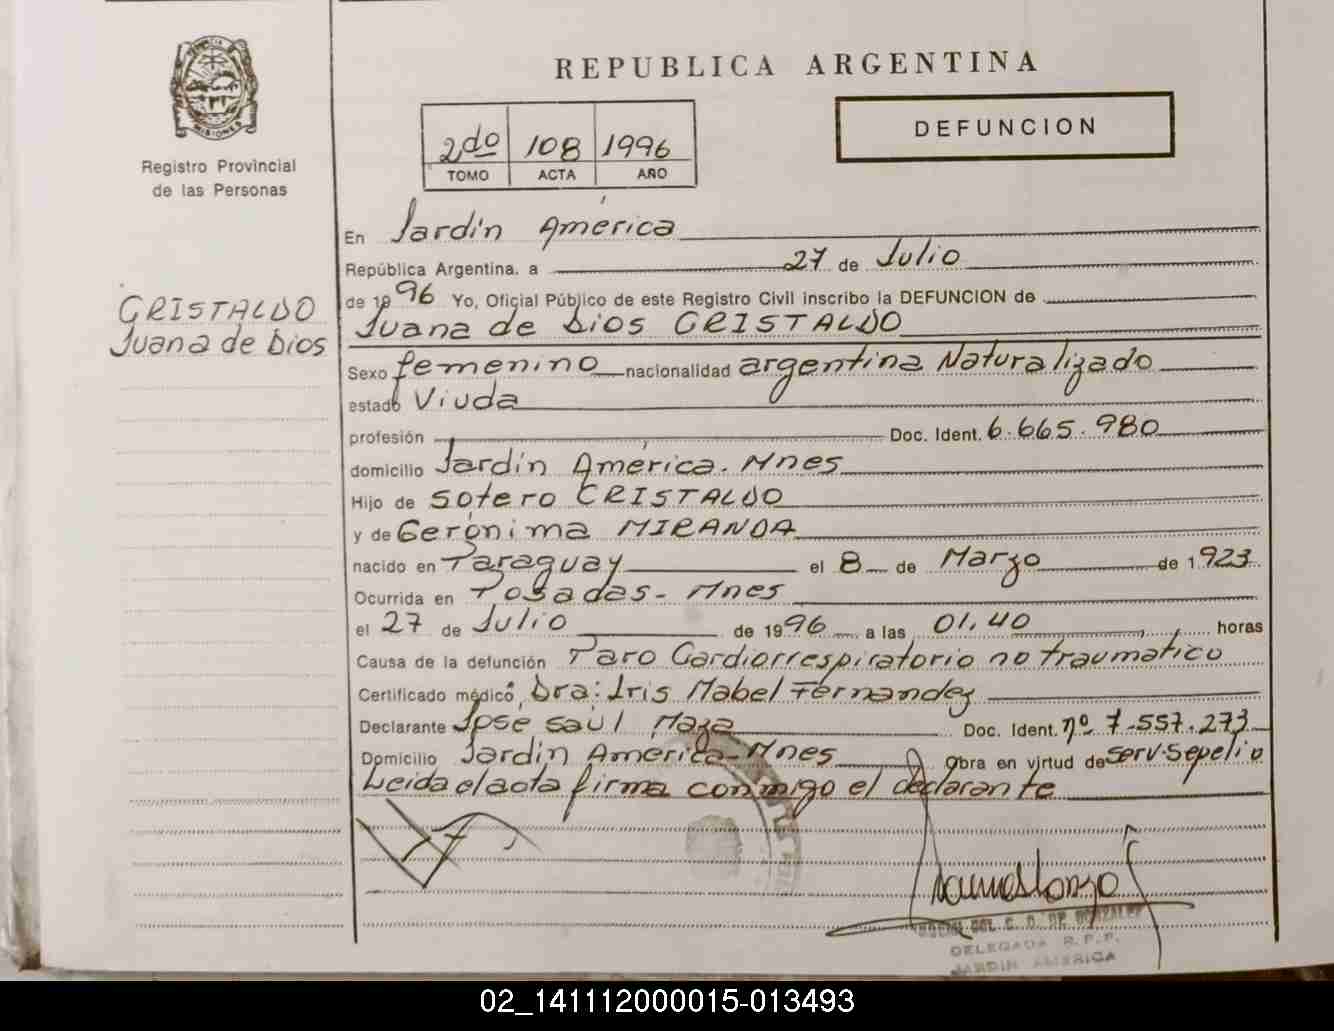 PROVINCIA DE
MISIONES
Registro Provincial
de las Personas
CRISTALDO
Juana de Dios
REPUBLICA ARGENTINA
2do 108 1996
TOMO ACTA AÑO
DEFUNCION
En Jardín América
República Argentina. a 27 de Julio
de 1996 Yo, Oficial Público de este Registro Civil inscribo la DEFUNCION de
Juana de Dios CRISTALDO
Sexo femenino nacionalidad argentina Naturalizado
estado Viuda
profesión Doc. Ident. 6.665.980
domicilio Jardín América. Mnes
Hijo de Sotero CRISTALDO
y de Gerónima MIRANDA
nacido en Paraguay el 8 de Marzo de 1923
Ocurrida en Posadas - Mnes
el 27 de Julio de 1996 a las 01,40 horas
Causa de la defunción Paro Cardiorrespiratorio no traumatico
Certificado médico, Dra: Iris Mabel Fernandez
Declarante Jose Saúl Maza Doc. Ident. nº 7.557.273
Domicilio Jardín América - Mnes Obra en virtud de serv. Sepelio
Leida el acta firma conmigo el declarante
DELEGADA R.P.P.
JARDIN AMERICA
02_141112000015-013493